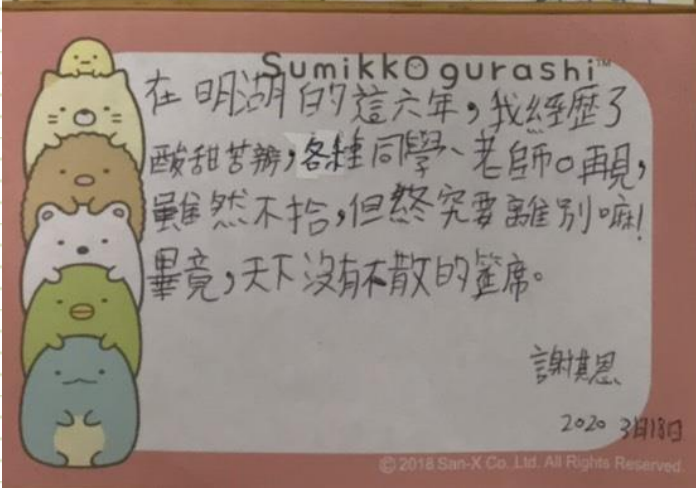 Sumikko gurashi™
在明湖的這六年，我經歷了
酸甜苦辦，各種同學、老師。再見，
雖然不拾，但終究要離別嘛！
畢竟，天下沒有不散的筵席。
謝其恩
2020 3月18日
© 2018 San-X Co. Ltd. All Rights Reserved.